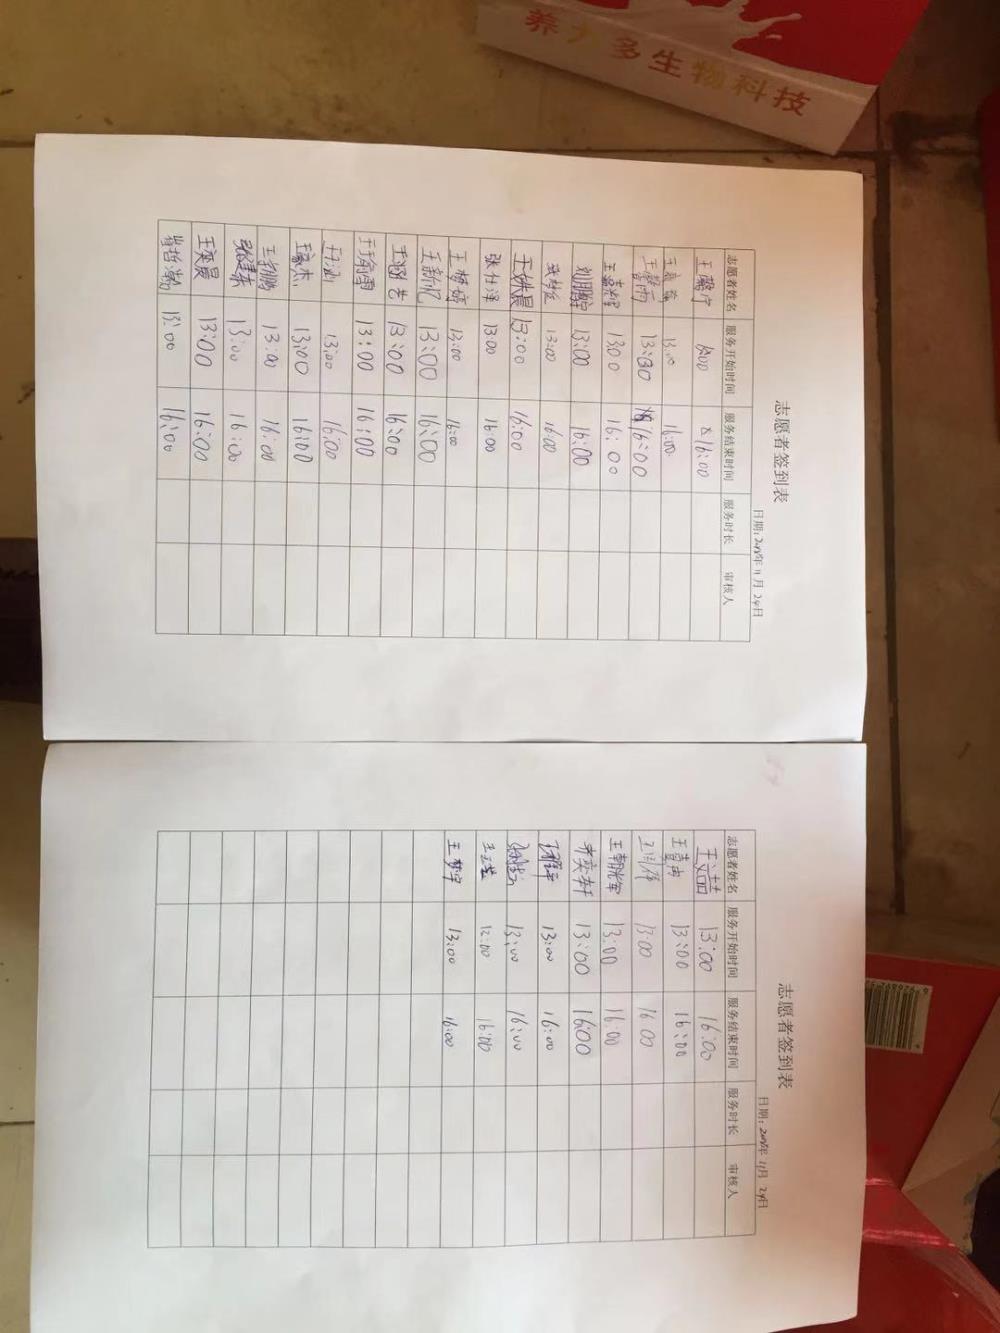 养力多生物科技
志愿者签到表
日期:2018年11月24日
志愿者姓名 服务开始时间 服务结束时间 服务时长 审核人
王馨宁 16:00
王嘉 13:00 16:00
王馨雨 13:00 16:00
王嘉耀 13:0 16:00
刘鹏 13:00 16:00
13:00 16:00
王姝晨 13:00 16:00
张仕泽 13:00 16:00
王梦婷 13:00 16:00
王新忆 13:00 16:00
王涵艺 13:00 16:00
王俞雨 13:00 16:00
王涵 13:00 16:00
杰 13:00 16:00
王鹏 13:00 16:00
张建荣 13:00 16:00
王奕晨 13:00 16:00
肖哲瀚 13:00 16:00
志愿者签到表
日期:2018年11月24日
志愿者姓名 服务开始时间 服务结束时间 服务时长 审核人
王喆 13:00 16:00
王嘉 13:00 16:00
13:00 16 00
王朝军 13:00 16:00
奕轩 13:00 16:00
13:00 16:00
13:00 16:00
12:00 16:00
王梦宇 13:00 16:00